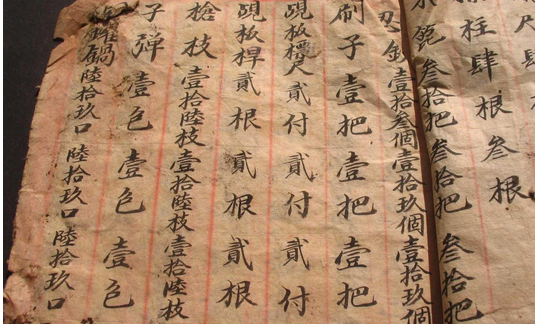 尺
柱肆根叁根
叁拾把叁拾把叁拾把
壹拾叁個壹拾玖個壹拾玖個
刷子壹把壹把壹把
板貳付貳付貳付
板桿貳根貳根貳根
槍枝壹拾陸枝壹拾陸枝壹拾陸枝
子弹壹色壹色壹色
鍋陸拾玖口陸拾玖口陸拾玖口